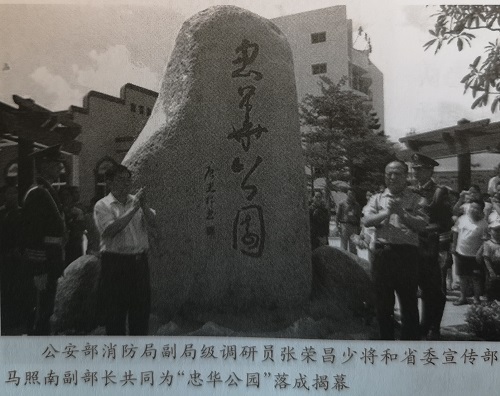 忠華公園
公安部消防局副局级调研员张荣昌少将和省委宣传部
马照南副部长共同为“忠华公园”落成揭幕